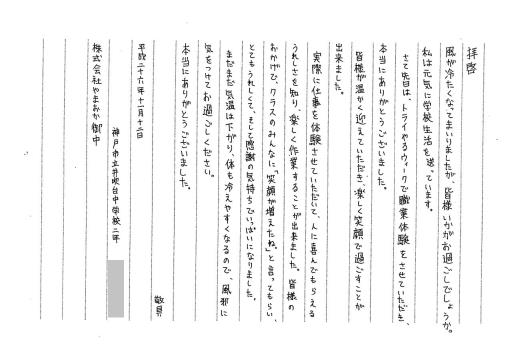 拝啓
風が冷たくなってまいりましたが、皆様いかがお過ごしでしょうか。
私は元気に学校生活を送っています。
さて先日は、トライやるウィークで職業体験をさせていただき、
本当にありがとうございました。
皆様が温かく迎えていただき、楽しく笑顔で過ごすことが
出来ました。
実際に仕事を体験させていただいて、人に喜んでもらえる
うれしさを知り、楽しく作業することが出来ました。皆様の
おかげで、クラスのみんなに「笑顔が増えたね。」と言ってもらい、
とてもうれしくて、そして感謝の気持ちでいっぱいになりました。
まだまだ気温は下がり、体も冷えやすくなるので、風邪に
気をつけてお過ごしください。
本当にありがとうございました。
敬具
平成二十六年十一月十二日
神戸市立井吹台中学校二年
株式会社やまおか御中